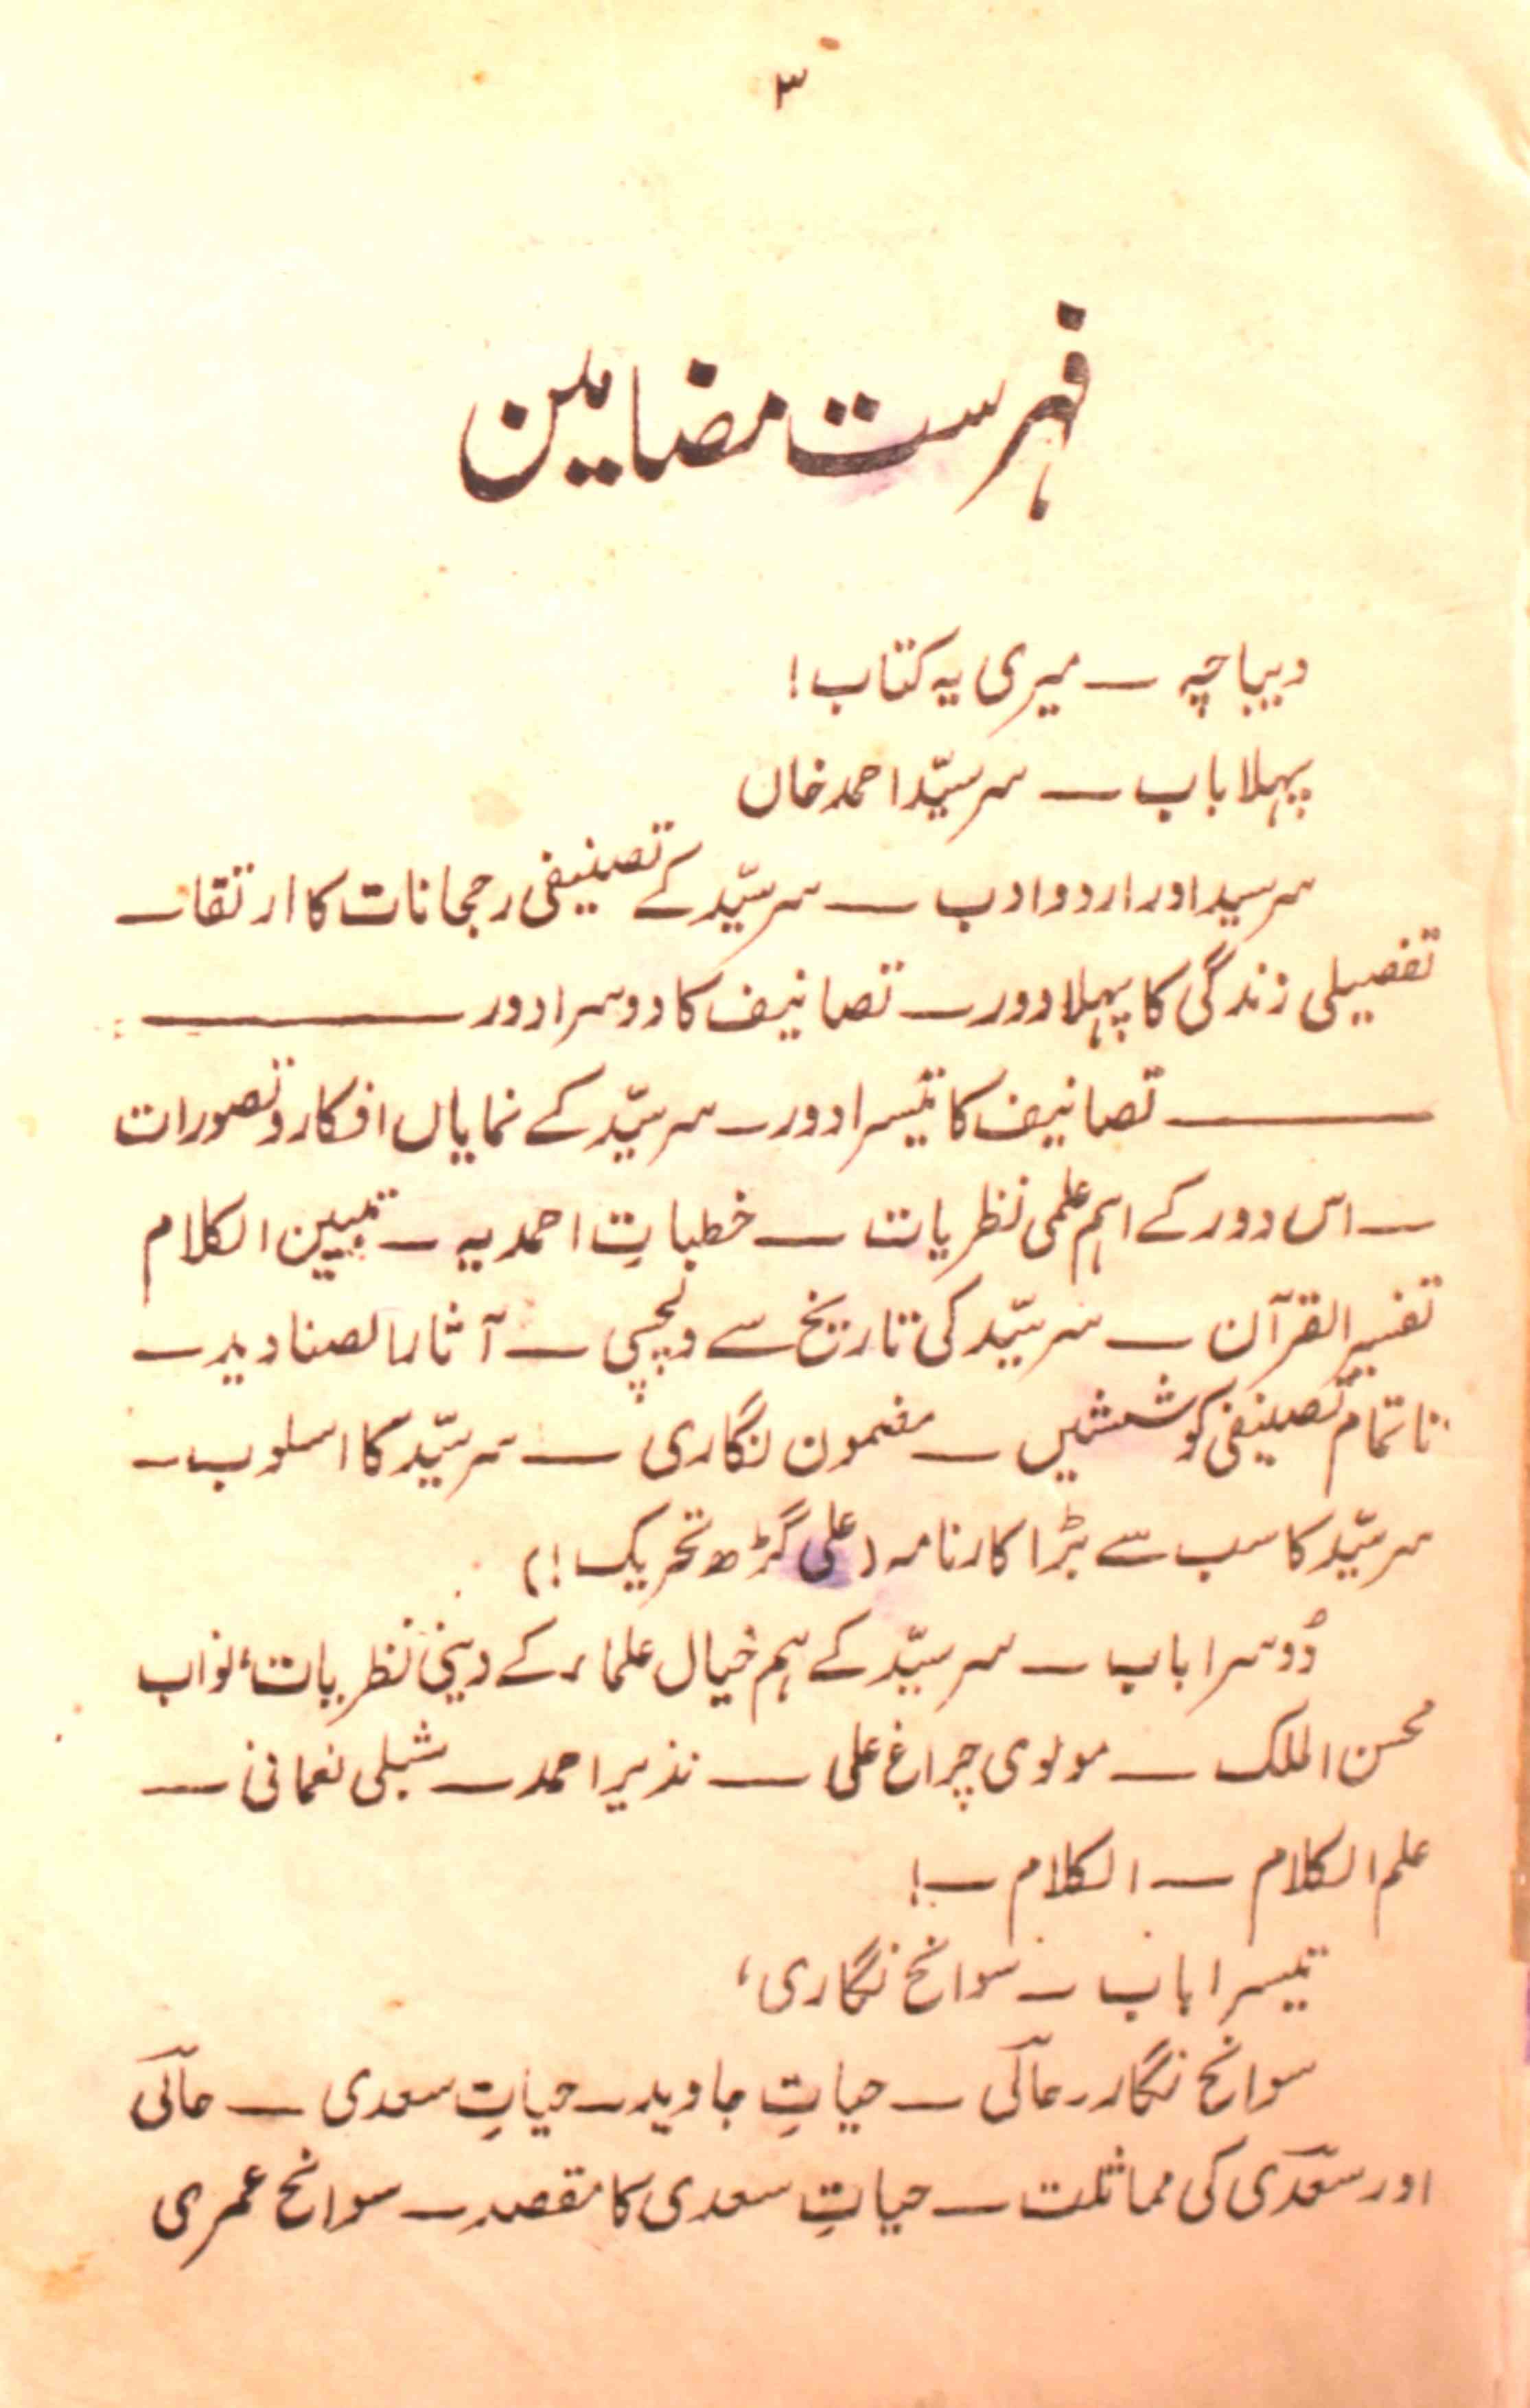 ۳
فہرست مضامین
دیباچہ — میری یہ کتاب!
پہلا باب — سرسیّد احمد خاں
سرسید اور اردو ادب — سرسیّد کے تصنیفی رجحانات کا ارتقاء —
تفصیلی زندگی کا پہلا دور — تصانیف کا دوسرا دور —
— تصانیف کا تیسرا دور — سرسیّد کے نمایاں افکار و تصورات
— اس دور کے اہم علمی نظریات — خطباتِ احمدیہ — تبیین الکلام
تفسیر القرآن — سرسیّد کی تاریخ سے دلچسپی — آثار الصنادید —
ناتمام تصنیفی کوششیں — مضمون نگاری — سرسیّد کا اسلوب —
سرسیّد کا سب سے بڑا کارنامہ (علی گڑھ تحریک!)
دُوسرا باب — سرسیّد کے ہم خیال علماء کے دینی نظریات، نواب
محسن الملک — مولوی چراغ علی — نذیر احمد — شبلی نعمانی —
علم الکلام — الکلام —!
تیسرا باب — سوانح نگاری،
سوانح نگار — حالی — حیاتِ جاوید — حیاتِ سعدی — حالی
اور سعدی کی مماثلت — حیاتِ سعدی کا مقصد — سوانح عمری